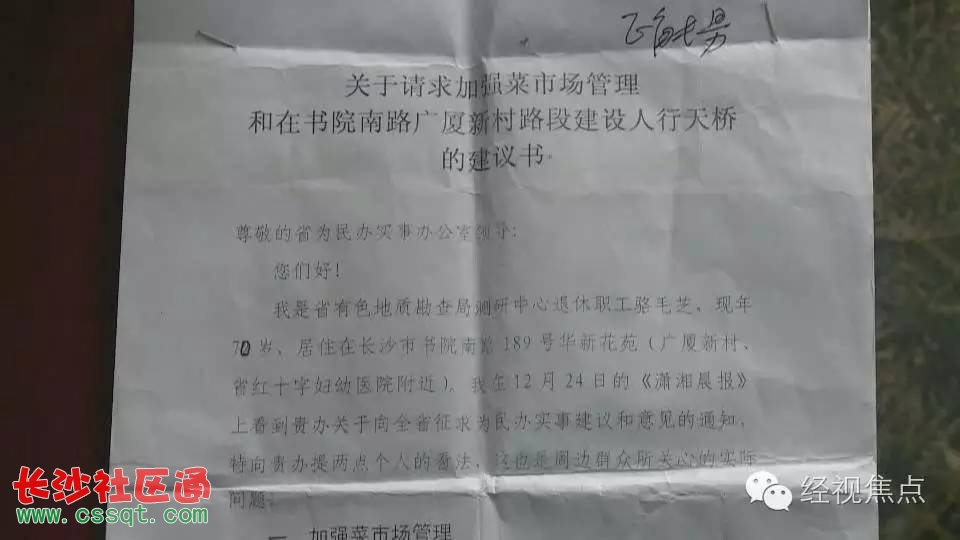 关于请求加强菜市场管理
和在书院南路广厦新村路段建设人行天桥
的建议书
尊敬的省为民办实事办公室领导:
您们好!
我是省有色地质勘查局测研中心退休职工骆毛芝、现年
70岁、居住在长沙市书院南路189号华新花苑(广厦新村、
省红十字妇幼医院附近)。我在12月24日的《潇湘晨报》
上看到贵办关于向全省征求为民办实事建议和意见的通知,
特向贵办提两点个人的看法,这也是周边群众所关心的实际
问题:
一、加强菜市场管理
长沙社区通
www.cssqt.com
经视焦点